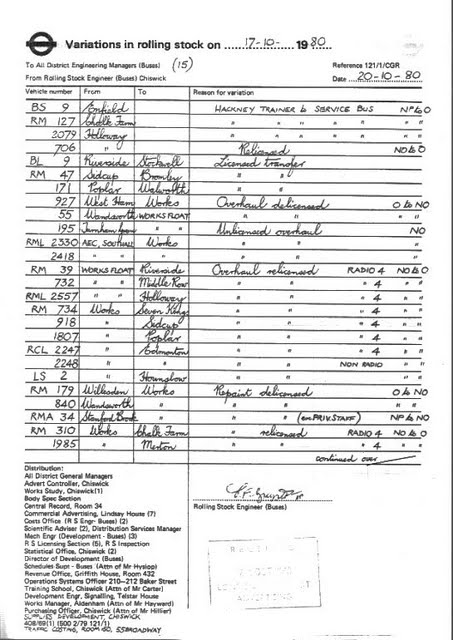 Variations in rolling stock on 17-10- 1980
To All District Engineering Managers (Buses) (15) Reference 121/1/CGR
From Rolling Stock Engineer (Buses) Chiswick Date 20-10-80
Vehicle number From To Reason for variation
BS 9 Enfield HACKNEY TRAINER to SERVICE BUS NP to O
RM 127 Chalk Farm " " " " " "
2079 Holloway " " " " " "
706 " Relicensed NO to O
BL 9 Riverside Stockwell Licensed transfer
RM 47 Sidcup Bromley " "
171 Poplar Walworth " "
927 West Ham Works Overhaul delicensed O to NO
55 Wandsworth WORKS FLOAT " " " "
195 Turnham Green " " Unlicensed overhaul NO
RML 2330 AEC, SOUTHALL Works " " "
2418 " " " " " "
RM 39 WORKS FLOAT Riverside Overhaul relicensed RADIO 4 NO to O
732 " " Middle Row " " " 4 " "
RML 2557 " " Holloway " " " 4 " "
RM 734 Works Seven Kings " " " 4 " "
918 " Sidcup " " " 4 " "
1807 " Poplar " " " 4 " "
RCL 2247 " Edmonton " " " 4 " "
2248 " " " " NON RADIO " "
LS 2 " Hounslow " " " "
RM 179 Willesden Works Repaint delicensed O to NO
840 Wandsworth " " " " "
RMA 34 Stamford Brook " " " (en PRIV. STAFF) NP to NO
RM 310 Works Chalk Farm " relicensed RADIO 4 NO to O
1985 " Merton " " " 4 " "
continued over
Distribution:
All District General Managers
Advert Controller, Chiswick
Works Study, Chiswick(1)
Body Spec Section
Central Record, Room 34
Commercial Advertising, Lindsay House (7)
Costs Office (R S Engr- Buses) (2)
Scientific Adviser (2), Distribution Services Manager
Mech Engr (Development - Buses) (3)
R S Licensing Section (5), R S Inspection
Statistical Office, Chiswick (2)
Director of Development (Buses)
Schedules Supt - Buses (Attn of Mr Hyslop)
Revenue Office, Griffith House, Room 432
Operations Systems Officer 210-212 Baker Street
Training School, Chiswick (Attn of Mr Carter)
Development Engr, Signalling, Telstar House
Works Manager, Aldenham (Attn of Mr Hayward)
Purchasing Officer, Chiswick (Attn of Mr Hillier)
SUPPLIES DEVELOPMENT, CHISWICK
408/89(1) (500 2/79 121/1)
TRAFFIC COSTING, ROOM 150, 55 BROADWAY
Rolling Stock Engineer (Buses)